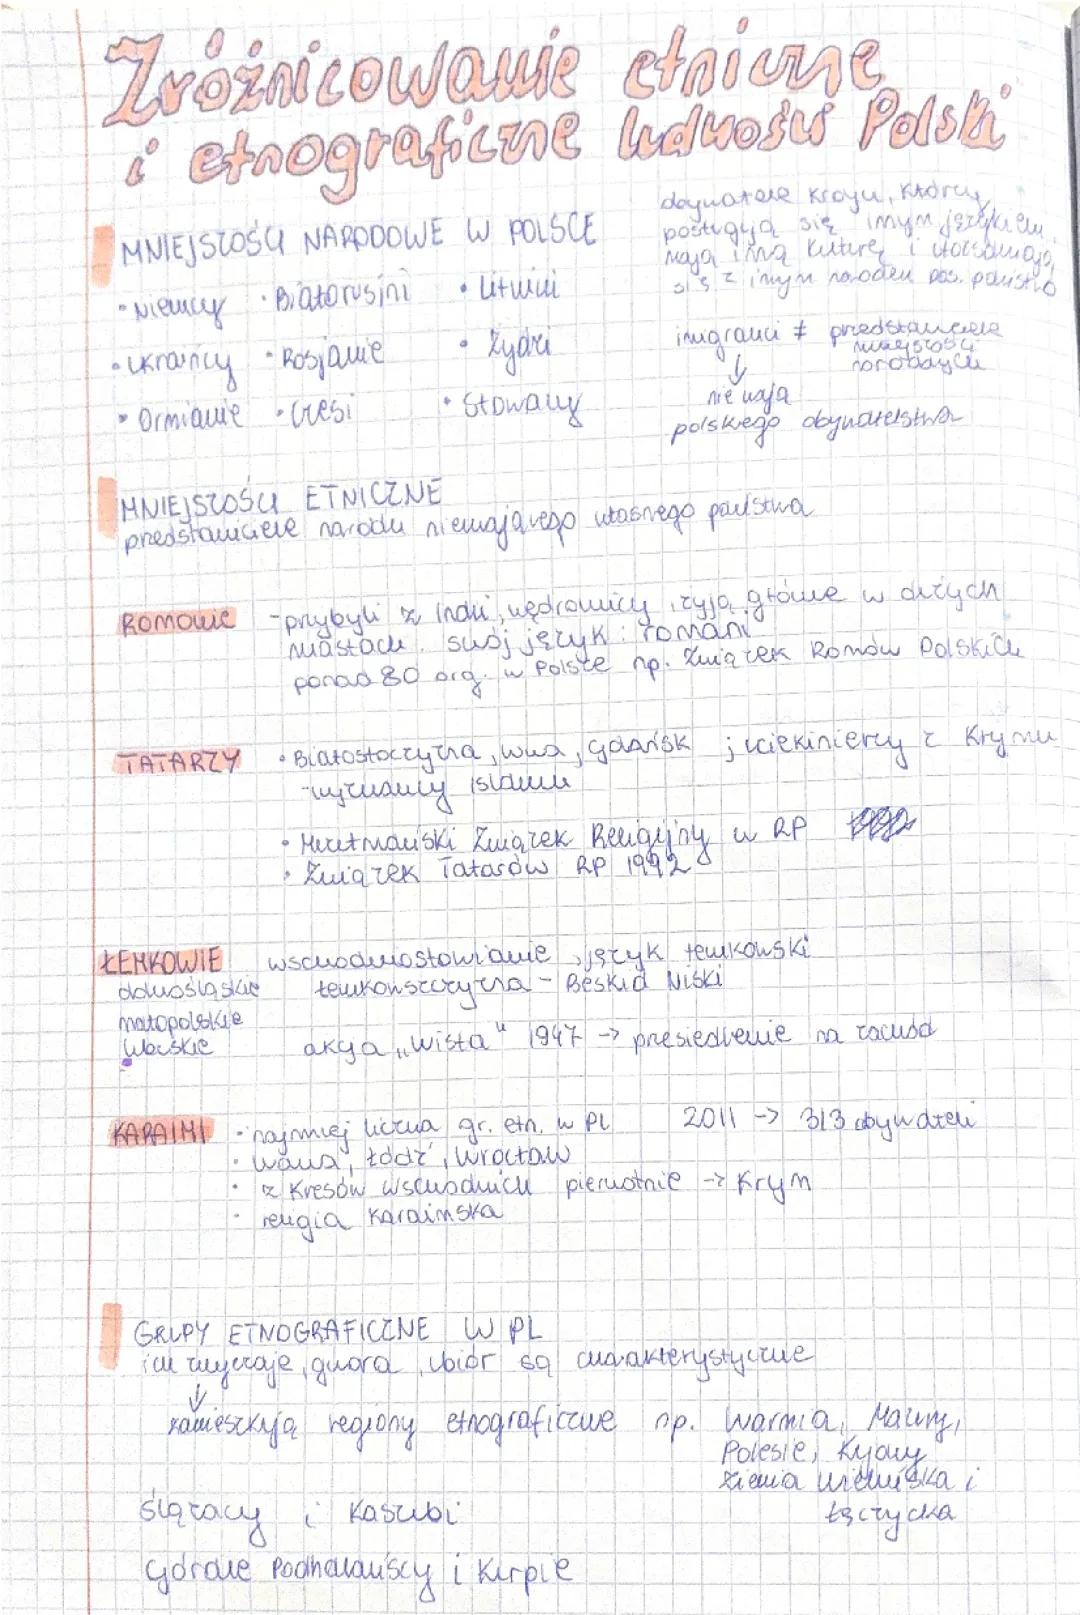 Zróżnicowanie etniczne
i etnograficzne ludności Polski
MNIEJSZOŚCI NARODOWE W POLSCE
• Niemcy • Białorusini • Litwini
• Ukraińcy • Rosjanie • Żydzi
• Ormianie • Czesi • Słowacy
obywatele kraju, którzy
posługują się innym językiem
mają inną kulturę i utożsamiają
się z innym narodem pos. państwo
imigranci ≠ przedstawiciele
mniejszości
narodowych
↓
nie mają
polskiego obywatelstwa
MNIEJSZOŚCI ETNICZNE
przedstawiciele narodu niemającego własnego państwa
ROMOWIE - przybyli z Indii, wędrowcy, żyją głównie w dużych
miastach. swój język: romani
ponad 80 org. w Polsce np. Związek Romów Polskich
TATARZY • Białostocczyzna, Wwa, Gdańsk ; uciekinierzy z Krymu
- wyznawcy islamu
• Muzułmański Związek Religijny w RP
• Związek Tatarów RP 1992
ŁEMKOWIE wschodniosłowianie, język łemkowski
dolnośląskie łemkowszczyzna - Beskid Niski
małopolskie
akcja "Wisła" 1947 → przesiedlenie na zachód
KARAIMI • najmniej liczna gr. etn. w PL 2011 → 313 obywateli
• Wawa, Łódź, Wrocław
• z Kresów wschodnich pierwotnie → Krym
• religia karaimska
GRUPY ETNOGRAFICZNE W PL
ich zwyczaje, gwara, ubiór są charakterystyczne
↓
zamieszkują regiony etnograficzne np. Warmia, Mazury,
Polesie, Kujawy
ziemia wieluńska i
łęczycka
Ślązacy i Kaszubi
Górale Podhalańscy i Kurpie